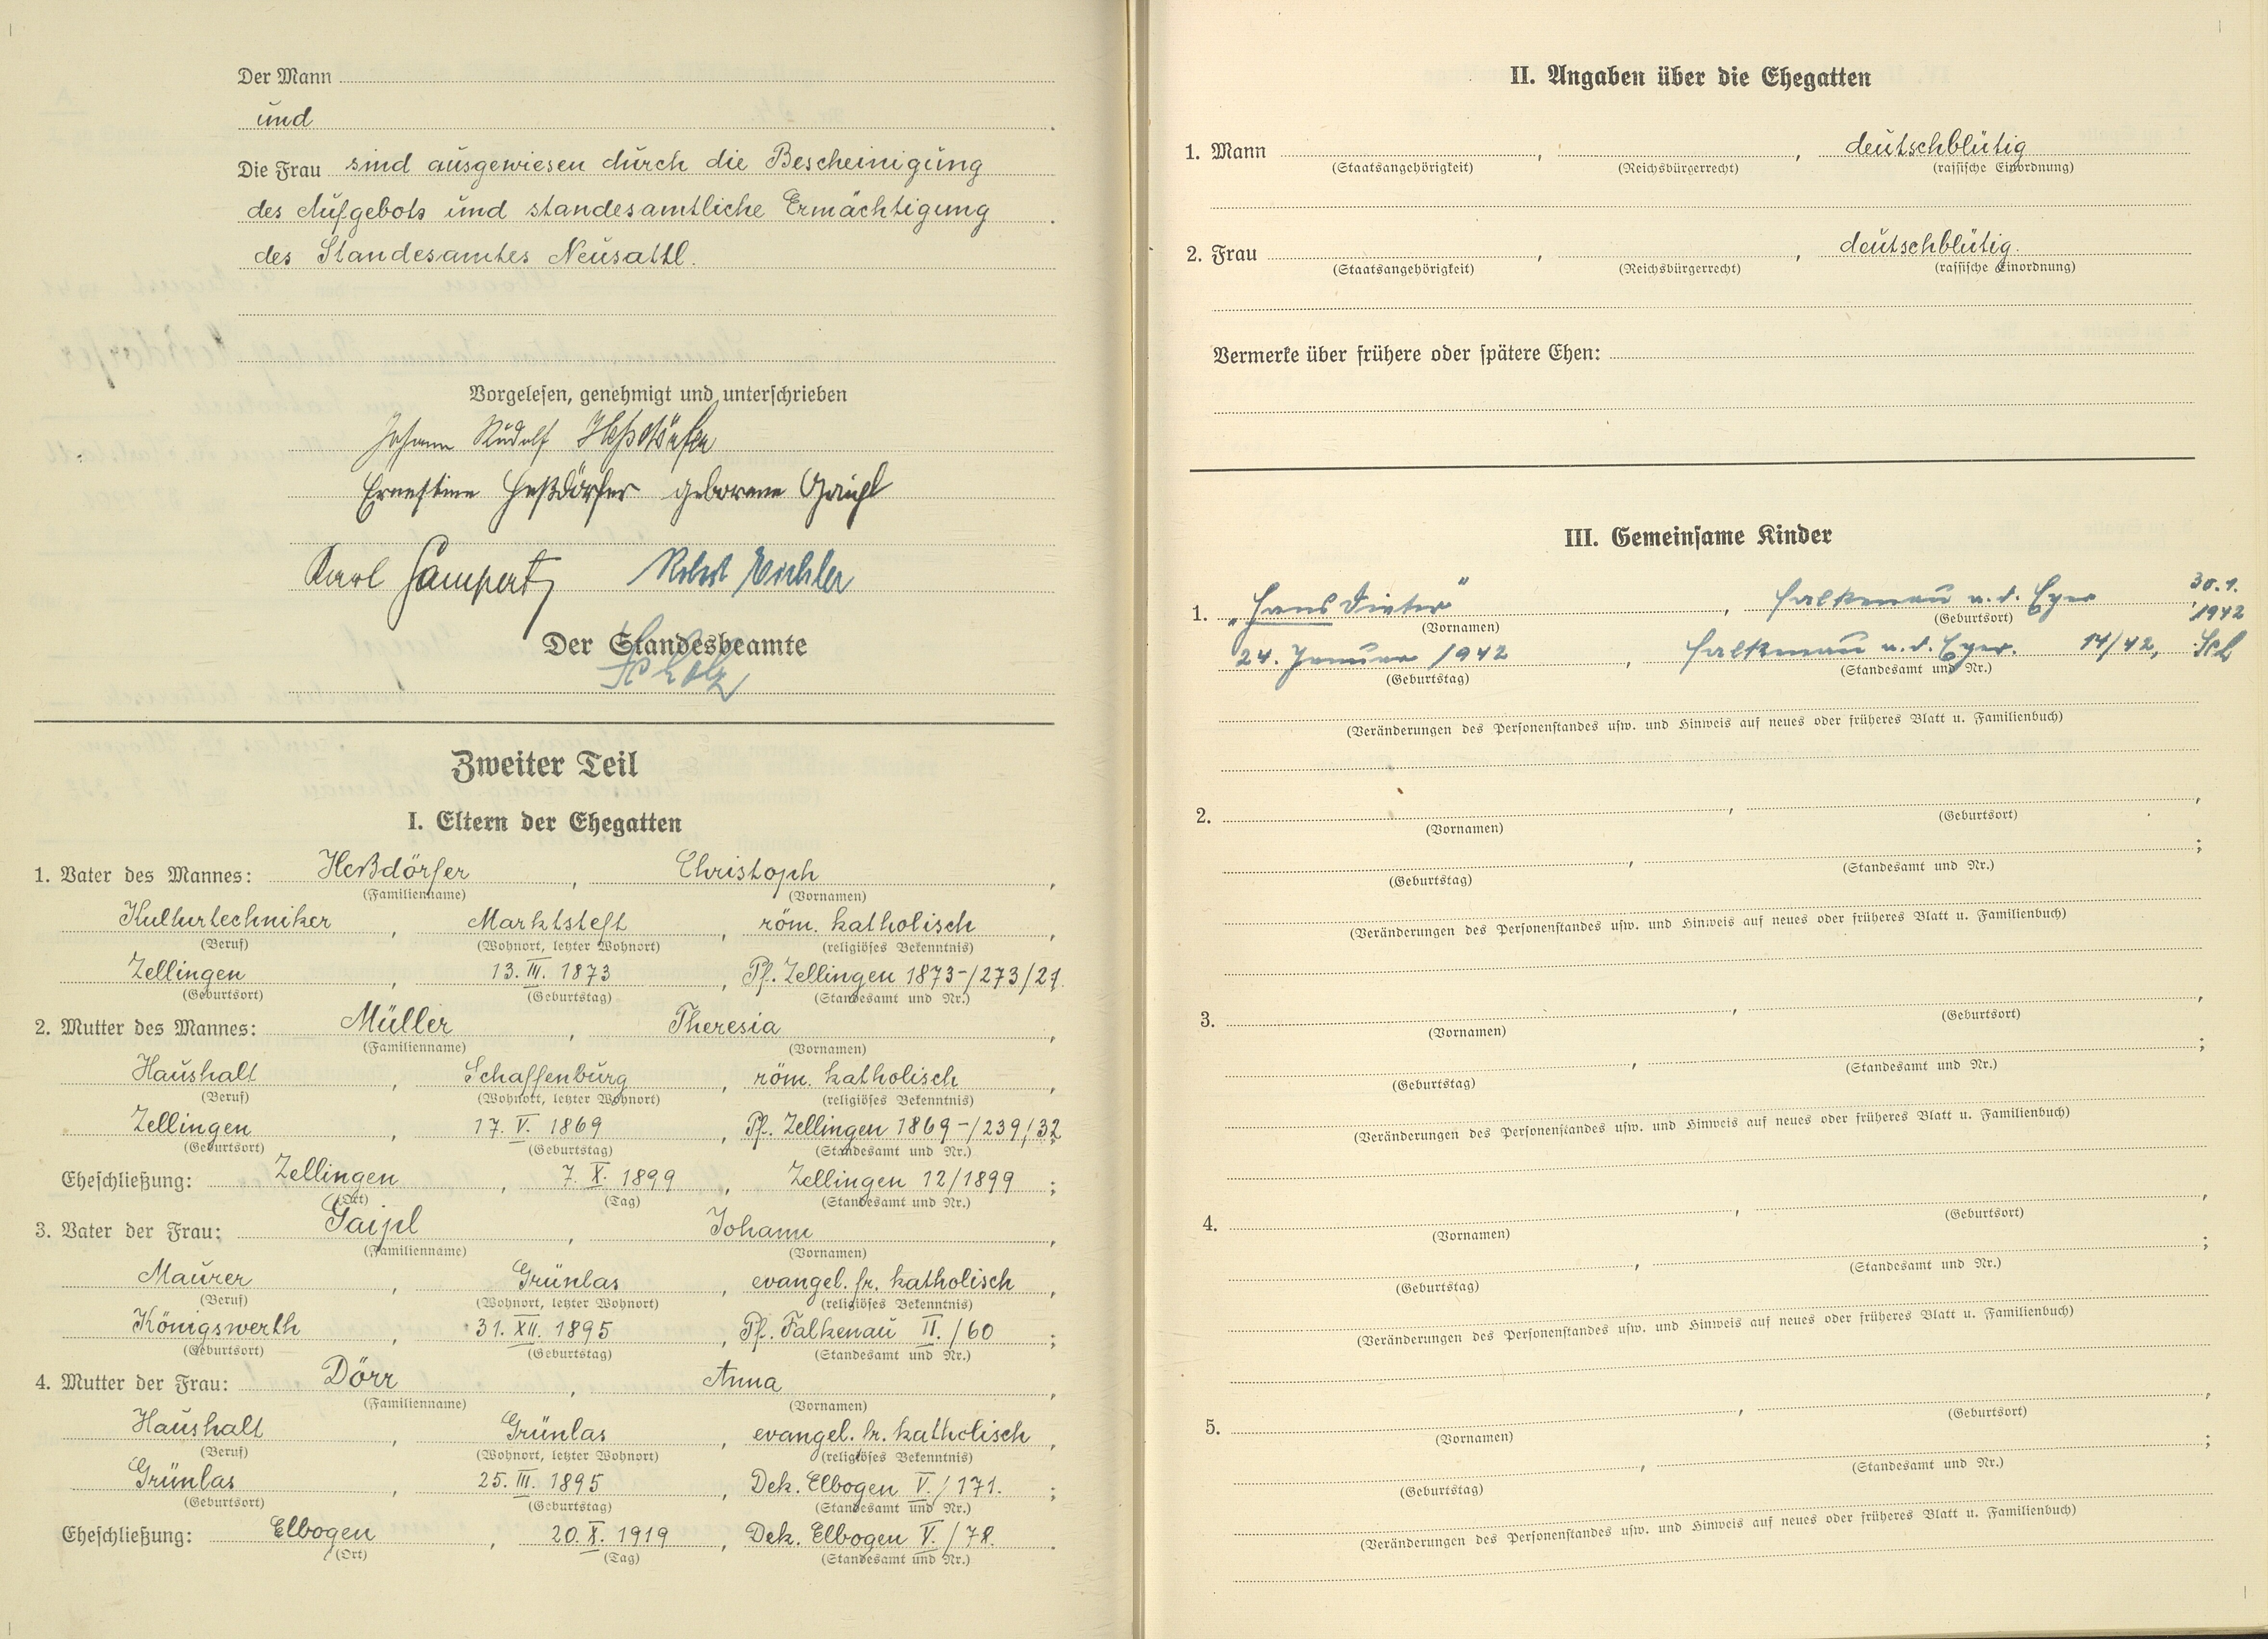 Der Mann
und
Die Frau sind ausgewiesen durch die Bescheinigung
des Aufgebots und standesamtliche Ermächtigung
des Standesamtes Neusattl.
Vorgelesen, genehmigt und unterschrieben
Johann Rudolf Heßdörfer
Ernestine Heßdörfer geborene Gaipl
Karl Lampert
Der Standesbeamte
Scholz
Zweiter Teil
I. Eltern der Ehegatten
1. Vater des Mannes: Heßdörfer, Christoph,
(Familienname) (Vornamen)
Kulturtechniker, Marktsteft, röm. katholisch,
(Beruf) (Wohnort, letzter Wohnort) (religiöses Bekenntnis)
Zellingen, 13. III. 1873, Pf. Zellingen 1873-/273/21.
(Geburtsort) (Geburtstag) (Standesamt und Nr.)
2. Mutter des Mannes: Müller, Theresia,
(Familienname) (Vornamen)
Haushalt, Schaffenburg, röm. katholisch,
(Beruf) (Wohnort, letzter Wohnort) (religiöses Bekenntnis)
Zellingen, 17. V. 1869, Pf. Zellingen 1869-/239/32;
(Geburtsort) (Geburtstag) (Standesamt und Nr.)
Eheschließung: Zellingen, 7. X. 1899, Zellingen 12/1899;
(Ort) (Tag) (Standesamt und Nr.)
3. Vater der Frau: Gaipl, Johann,
(Familienname) (Vornamen)
Maurer, Grünlas, evangel. fr. katholisch,
(Beruf) (Wohnort, letzter Wohnort) (religiöses Bekenntnis)
Königswerth, 31. XII. 1895, Pf. Falkenau II./60;
(Geburtsort) (Geburtstag) (Standesamt und Nr.)
4. Mutter der Frau: Dörr, Anna,
(Familienname) (Vornamen)
Haushalt, Grünlas, evangel. fr. katholisch,
(Beruf) (Wohnort, letzter Wohnort) (religiöses Bekenntnis)
Grünlas, 25. III. 1895, Dek. Elbogen V./171.;
(Geburtsort) (Geburtstag) (Standesamt und Nr.)
Eheschließung: Elbogen, 20. X. 1919, Dek. Elbogen V./78.
(Ort) (Tag) (Standesamt und Nr.)
II. Angaben über die Ehegatten
1. Mann , , deutschblütig
(Staatsangehörigkeit) (Reichsbürgerrecht) (rassische Einordnung)
2. Frau , , deutschblütig.
(Staatsangehörigkeit) (Reichsbürgerrecht) (rassische Einordnung)
Vermerke über frühere oder spätere Ehen:
III. Gemeinsame Kinder
1. „Hans Dieter", Falkenau a. d. Eger, 30. 1. 1942
(Vornamen) (Geburtsort)
24. Januar 1942, Falkenau a. d. Eger. 14/42, Sch
(Geburtstag) (Standesamt und Nr.)
(Veränderungen des Personenstandes usw. und Hinweis auf neues oder früheres Blatt u. Familienbuch)
2. , ,
(Vornamen) (Geburtsort)
, ;
(Geburtstag) (Standesamt und Nr.)
(Veränderungen des Personenstandes usw. und Hinweis auf neues oder früheres Blatt u. Familienbuch)
3. , ,
(Vornamen) (Geburtsort)
, ;
(Geburtstag) (Standesamt und Nr.)
(Veränderungen des Personenstandes usw. und Hinweis auf neues oder früheres Blatt u. Familienbuch)
4. , ,
(Vornamen) (Geburtsort)
, ;
(Geburtstag) (Standesamt und Nr.)
(Veränderungen des Personenstandes usw. und Hinweis auf neues oder früheres Blatt u. Familienbuch)
5. , ,
(Vornamen) (Geburtsort)
, ;
(Geburtstag) (Standesamt und Nr.)
(Veränderungen des Personenstandes usw. und Hinweis auf neues oder früheres Blatt u. Familienbuch)